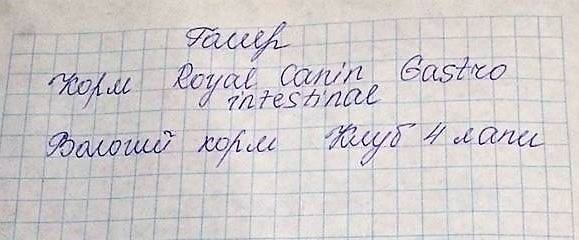 Галер
Корм Royal Canin Gastro
intestinal
Вологий корм Клуб 4 лапи